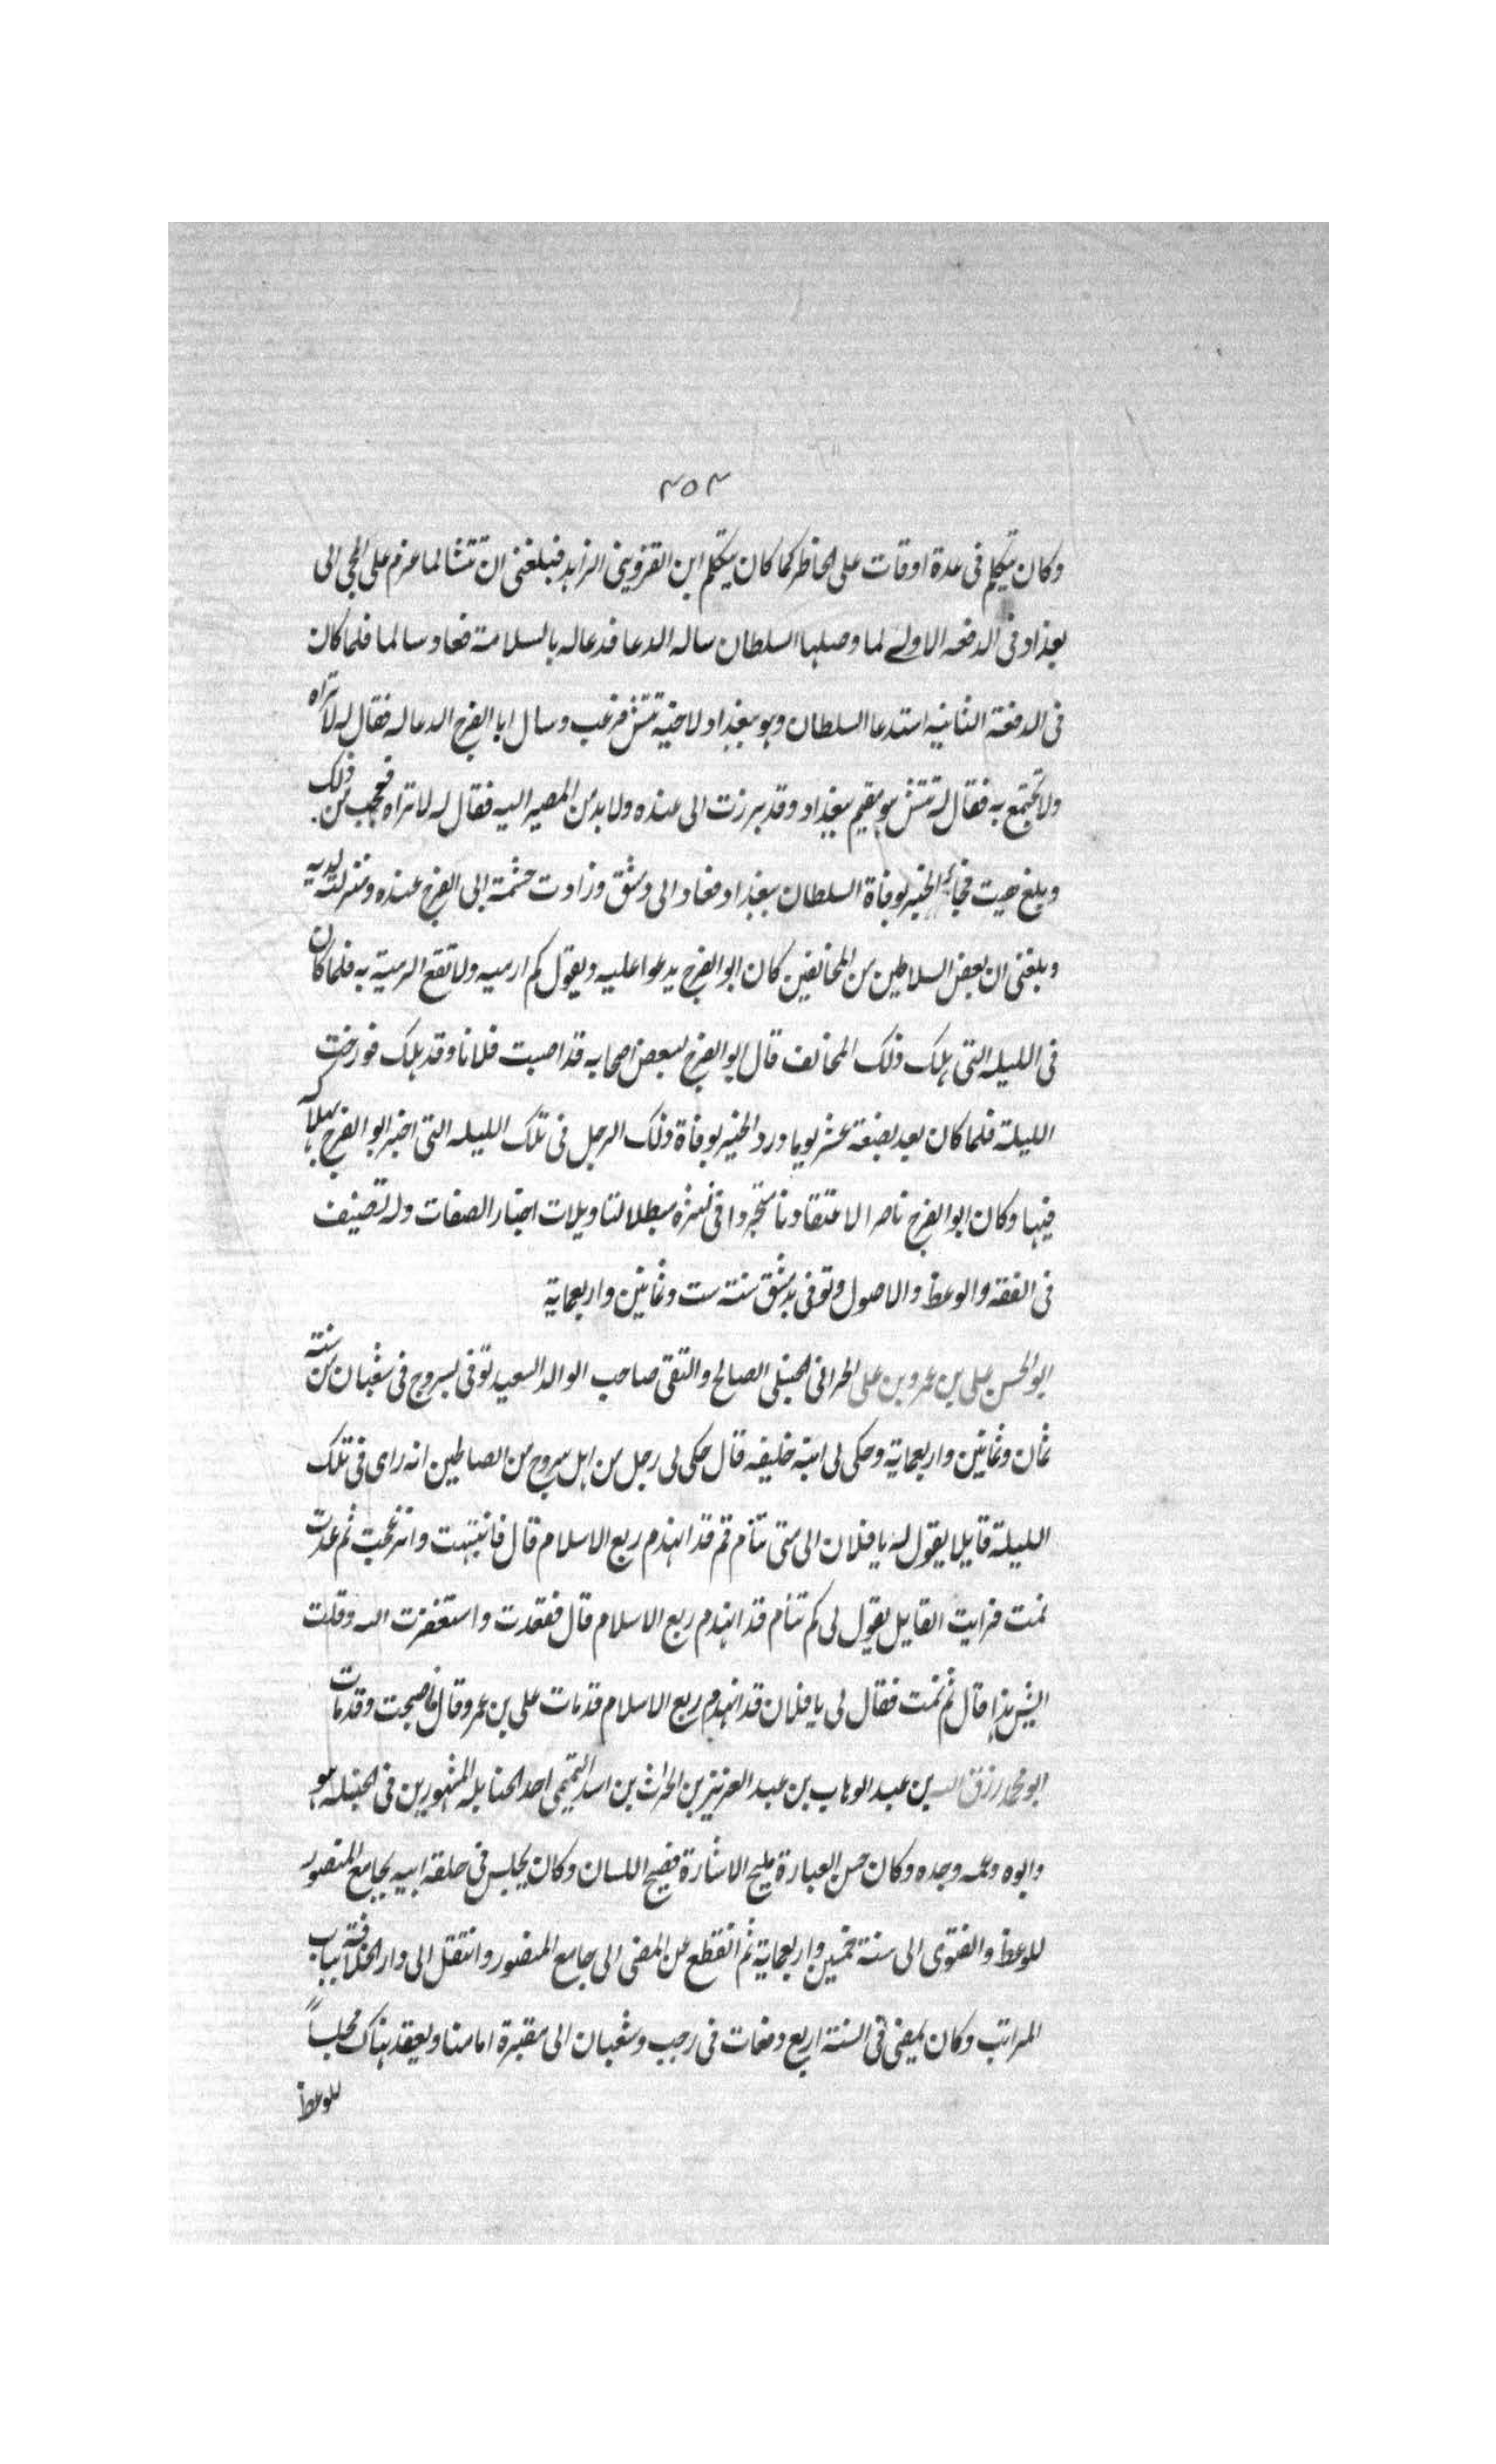 ٤٥٣
وكان يتكلم فى عدة اوقات على الخاطر كما كان يتكلم ابن القزوينى الزاهد فبلغنى ان تتشا لما عزم على المجى الى
بغداد فى الدفعه الاولى لما وصلها السلطان ساله الدعا فدعا له بالسلامة فعاد سالما فلما كان
فى الدفعة الثانيه استدعا السلطان وهو ببغداد لاخيه تتش فرعب وسال ابا الفرج الدعا له فقال له لا تراه
ولا تجتمع به فقال له تتش هو مقيم ببغداد وقد برزت الى عنده ولا بد من المصير اليه فقال له لا تراه فعجب من ذلك
وبلغ هيت فجاءه الخبر بوفاة السلطان ببغداد فعاد الى دمشق وزادت حشمة ابى الفرج عنده ومنزلته لديه
وبلغنى ان بعض السلاطين من المخالفين كان ابو الفرج يدعوا عليه ويقول كم ارميه ولا تقع الرمية به فلما كان
فى الليله التى هلك ذلك المخالف قال ابو الفرج لبعض اصحابه قد اصبت فلانا وقد هلك فورخت
الليلة فلما كان بعد بضعة عشر يوما ورد الخبر بوفاة ذلك الرجل فى تلك الليله التى اخبر ابو الفرج بهلاكه
فيها وكان ابو الفرج ناصر الاعتقادنا متجردا فى نشره مبطلا لتاويلات اخبار الصفات وله تصنيف
فى الفقه والوعظ والاصول وتوفى بدمشق سنة ست وثمانين واربعماية
ابو الحسن على بن عمرو بن على الحرانى الحنبلى الصالح والتقى صاحب الوالد السعيد توفى بسروج فى شعبان من سنة
ثمان وثمانين واربعماية وحكى لى ابنه خليفه قال حكى لى رجل من اهل سروج من الصالحين انه راى فى تلك
الليلة قايلا يقول له يا فلان الى متى تنام قم قد انهدم ربع الاسلام قال فانتبهت وانزعجت ثم عدت
نمت فرايت القايل يقول لى كم تنام قد انهدم ربع الاسلام قال فقعدت واستغفرت الله وقلت
ايش هذا قال ثم نمت فقال لى يا فلان قد انهدم ربع الاسلام قد مات على بن عمرو قال فاصبحت وقد مات
ابو محمد رزق الله بن عبد الوهاب بن عبد العزيز بن الحراث بن اسد التميمى احد الحنابله المشهورين فى الحنبلة هو
وابوه وعمه وجده وكان حسن العبارة مليح الاشارة فصيح اللسان وكان يجلس فى حلقة ابيه بجامع المنصور
للوعظ والفتوى الى سنة خمسين واربعماية ثم انقطع عن المضى الى جامع المنصور وانتقل الى دار الخلافة بباب
المراتب وكان يمضى فى السنة اربع دفعات فى رجب وشعبان الى مقبرة امامنا ويعقد هناك مجلسا
للوعظ